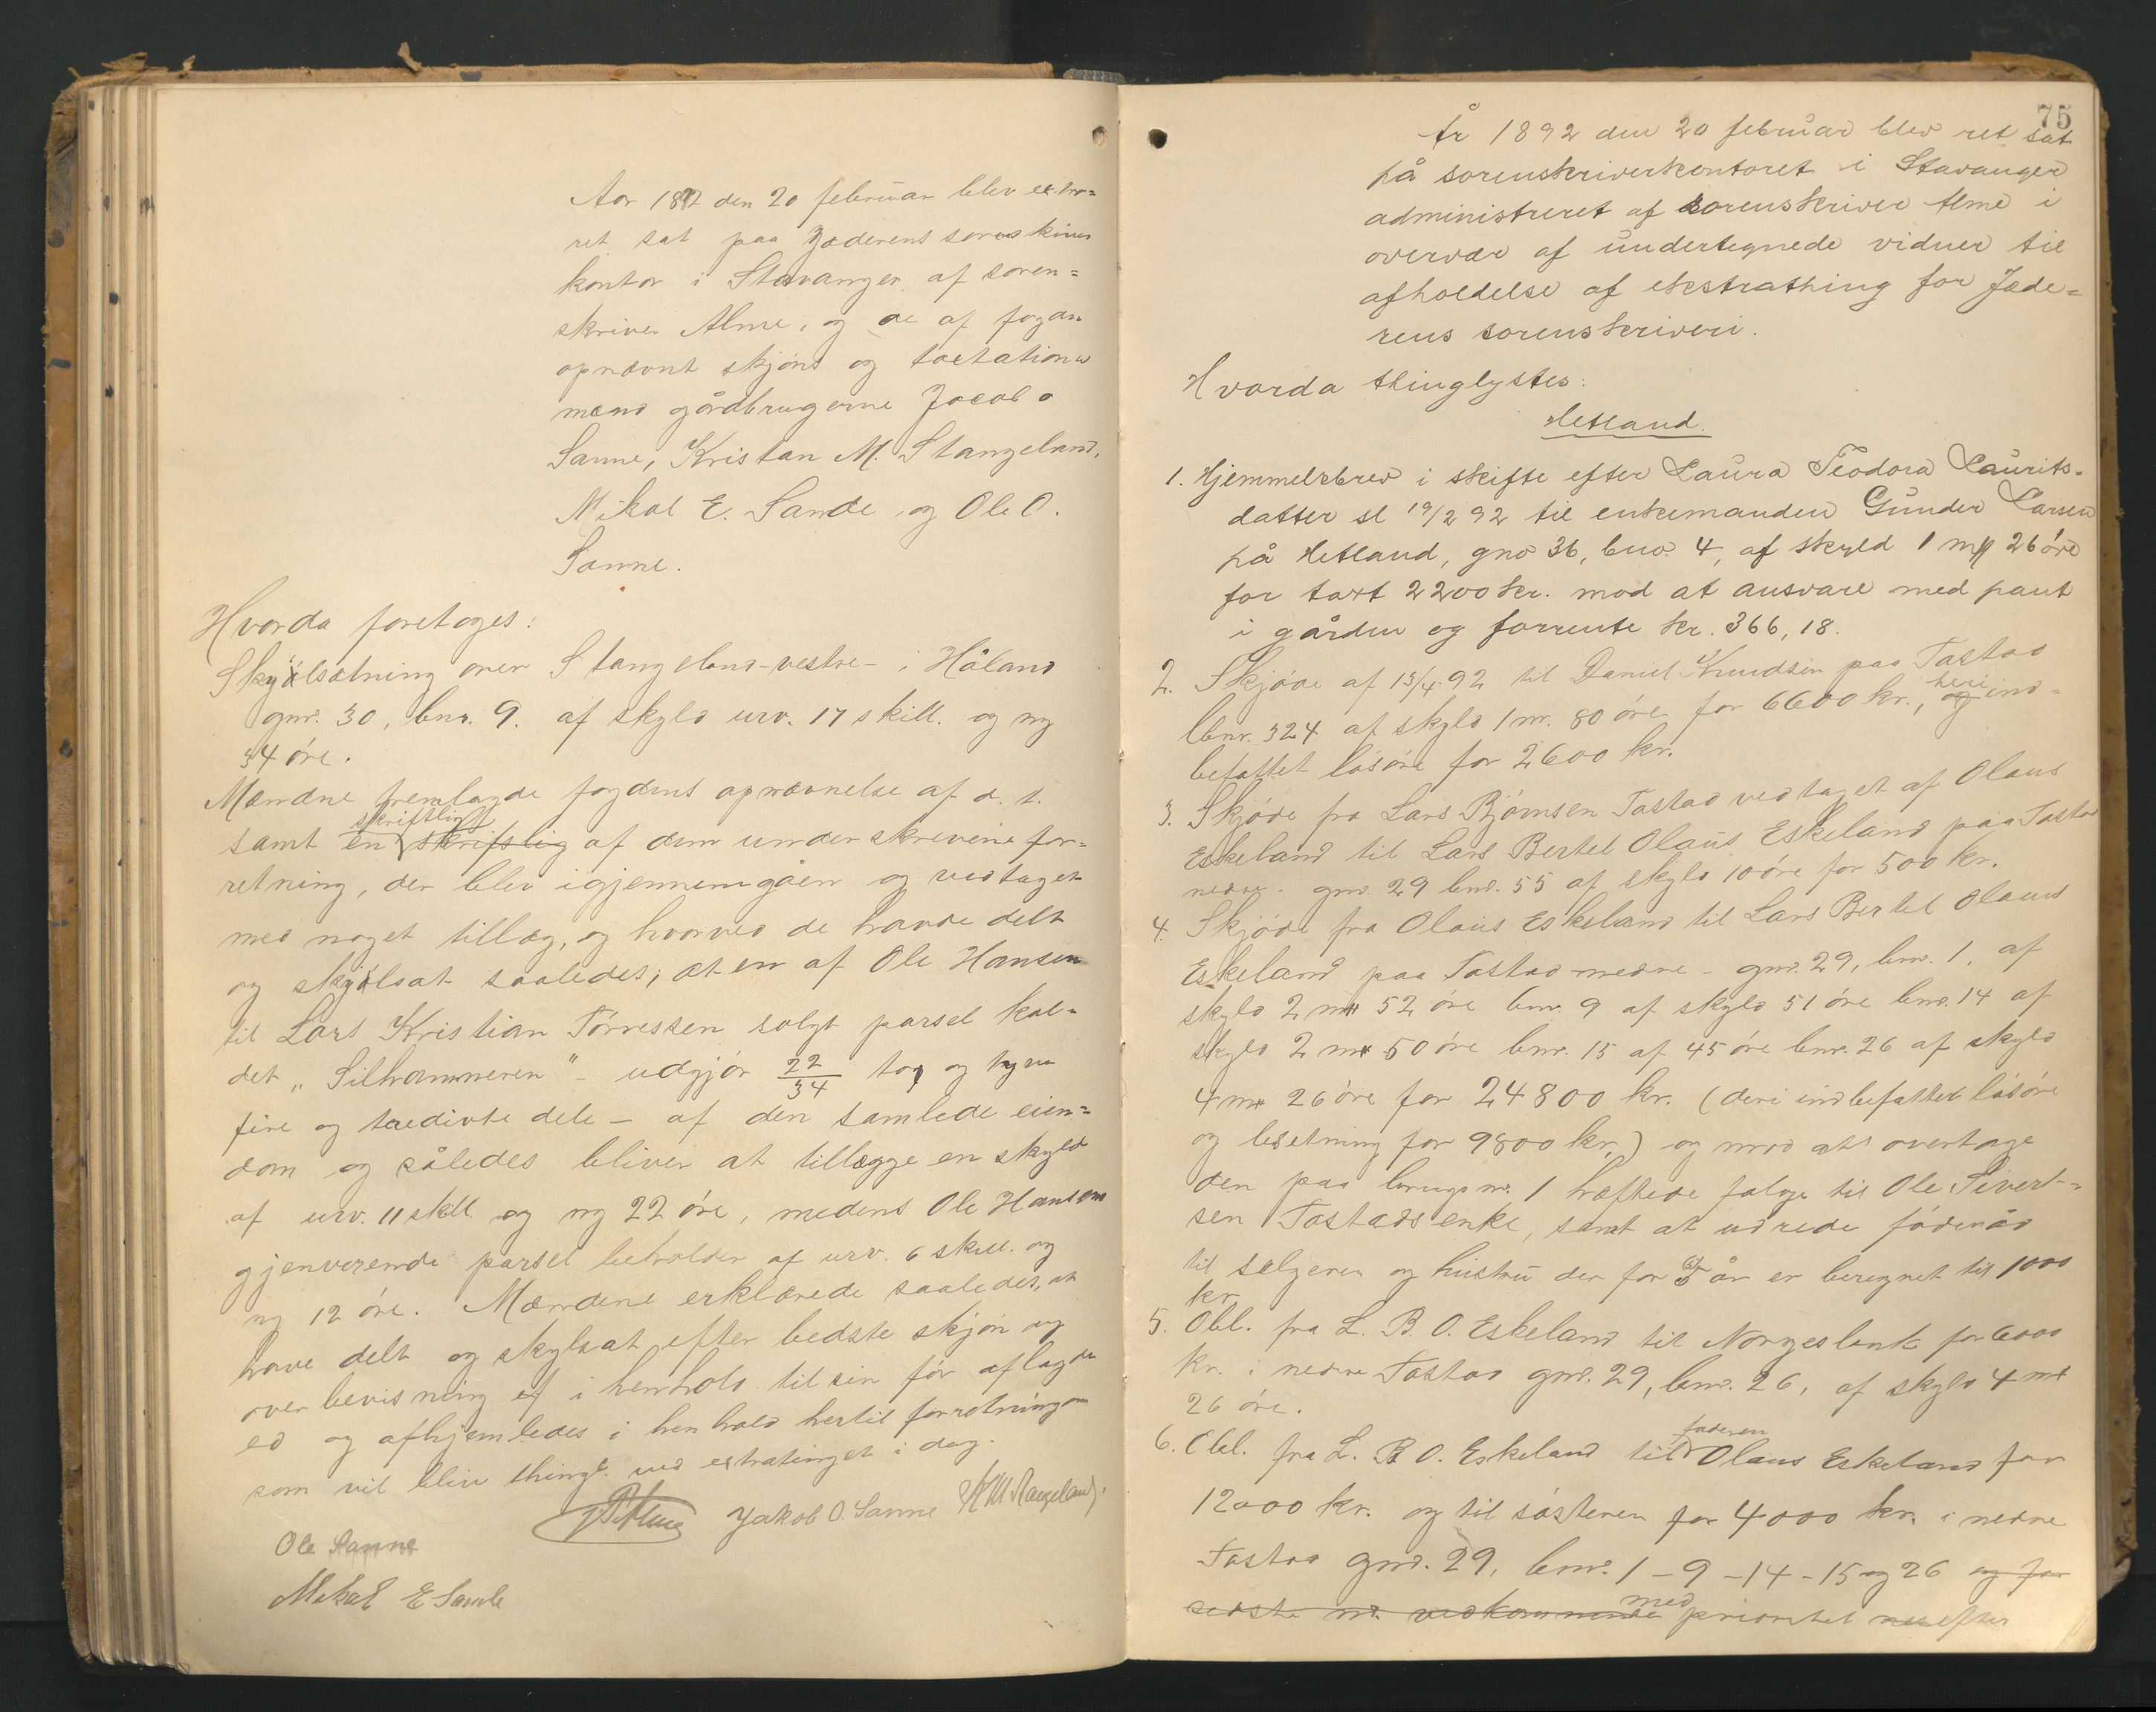 Aar 1892 den 20 februar blev extra=
ret sat paa Jæderens sorenskriver
kontor i Stavanger af soren=
skriver Alme, og de af fogden
opnævnt skjøns og taxtations
mænd gårdbrugerne Jacob O
Sanne, Kristan M. Stangeland,
Mikal E. Sande og Ole O.
Sanne.
Hvorda foretoges:
Skyldsætning over Stangeland-vestre- i Håland
gnr. 30, bnr. 9. af skyld urv. 17 skill. og ny
34 øre.
Mændne fremlagde fogdens opnævnelse af d. t.
samt en skriftlig skrifslig af dem underskrevene for=
retning, der blev igjennemgåen og vedtaget
med noget tillæg, og hvorved de havde delt
og skyldsat saaledes, at en af Ole Hansen
til Lars Kristian Tørressen solgt parsel kal=
det „Silhammeren" – udgjør 22/34 to og tyve
fire og tredivte dele – af den samlede eien=
dom og således bliver at tillægge en skyld
af urv. 11 skill. og ny 22 øre, medens Ole Hansens
gjenverende parsel beholder af urv. 6 skill. og
ny 12 øre. Mændene erklærede saaledes, at
have delt og skyldsat efter bedste skjøn og
overbevisning i henhold til sin før aflagde
ed og afhjemledes i henhold hertil forretningen
som vil blive thingl. ved extratinget i dag.
Jakob O. Sanne KM Stangeland
Ole Sanne
Mikal E Sande
75
År 1892 den 20 februar blev ret sat
på sorenskriverkontoret i Stavanger
administreret af sorenskriver Alme i
overvær af undertegnede vidner til
afholdelse af ekstrathing for Jæde=
rens sorenskriveri.
Hvorda thinglystes:
Hetland.
1. Hjemmelsbrev i skifte efter Laura Teodora Laurits-
datter sl 19/2 92 til enkemanden Gunder Larsen
på Hetland, gno 36, bno 4, af skyld 1 mk 26 øre
for taxt 2200 kr. mod at ansvare med pant
i gården og forrente kr. 366,18.
2. Skjøde af 13/4 92 til Daniel Knudsen paa Tastad
lbnr. 324 af skyld 1 m. 80 øre for 6600 kr., og heri ind=
befattet løsøre for 2600 kr.
3. Skjøde fra Lars Bjørnsen Tastad vedtaget af Olaus
Eskeland til Lars Bertel Olaus Eskeland paa Tastad
nedre - gnr. 29 bnr. 55 af skyld 10 øre for 500 kr.
4. Skjøde fra Olaus Eskeland til Lars Bertel Olaus
Eskeland paa Tastad nedre - gnr. 29, bnr. 1. af
skyld 2 mk 52 øre bnr. 9 af skyld 51 øre bnr. 14 af
skyld 2 mk 50 øre bnr. 15 af 45 øre bnr. 26 af skyld
4 mk 26 øre for 24800 kr. (deri indbefattet løsøre
og besetning for 9800 kr.) og mod at overtage
den paa brugsnr. 1 hæftede folge til Ole Sivert=
sen Tastads enke, samt at udrede føderåd
til sælgeren og hustru der for 5 år er beregnet til 1000
kr.
5. Obl. fra L. B. O. Eskeland til Norges bank for 6000
kr. i nedre Tastad gnr. 29, bnr. 26, af skyld 4 mk
26 øre.
6. Obl. fra L. B O. Eskeland til faderen Olaus Eskeland for
12000 kr. og til søsteren for 4000 kr. i nedre
Tastad gnr. 29, bnr. 1 – 9 – 14 – 15 og 26 og for
sidste nr. vedkommende med prioritet efter